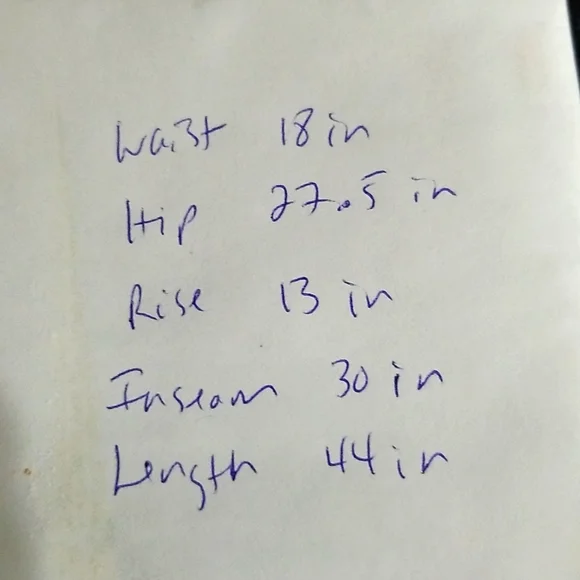 Waist 18 in
Hip 27.5 in
Rise 13 in
Inseam 30 in
Length 44 in